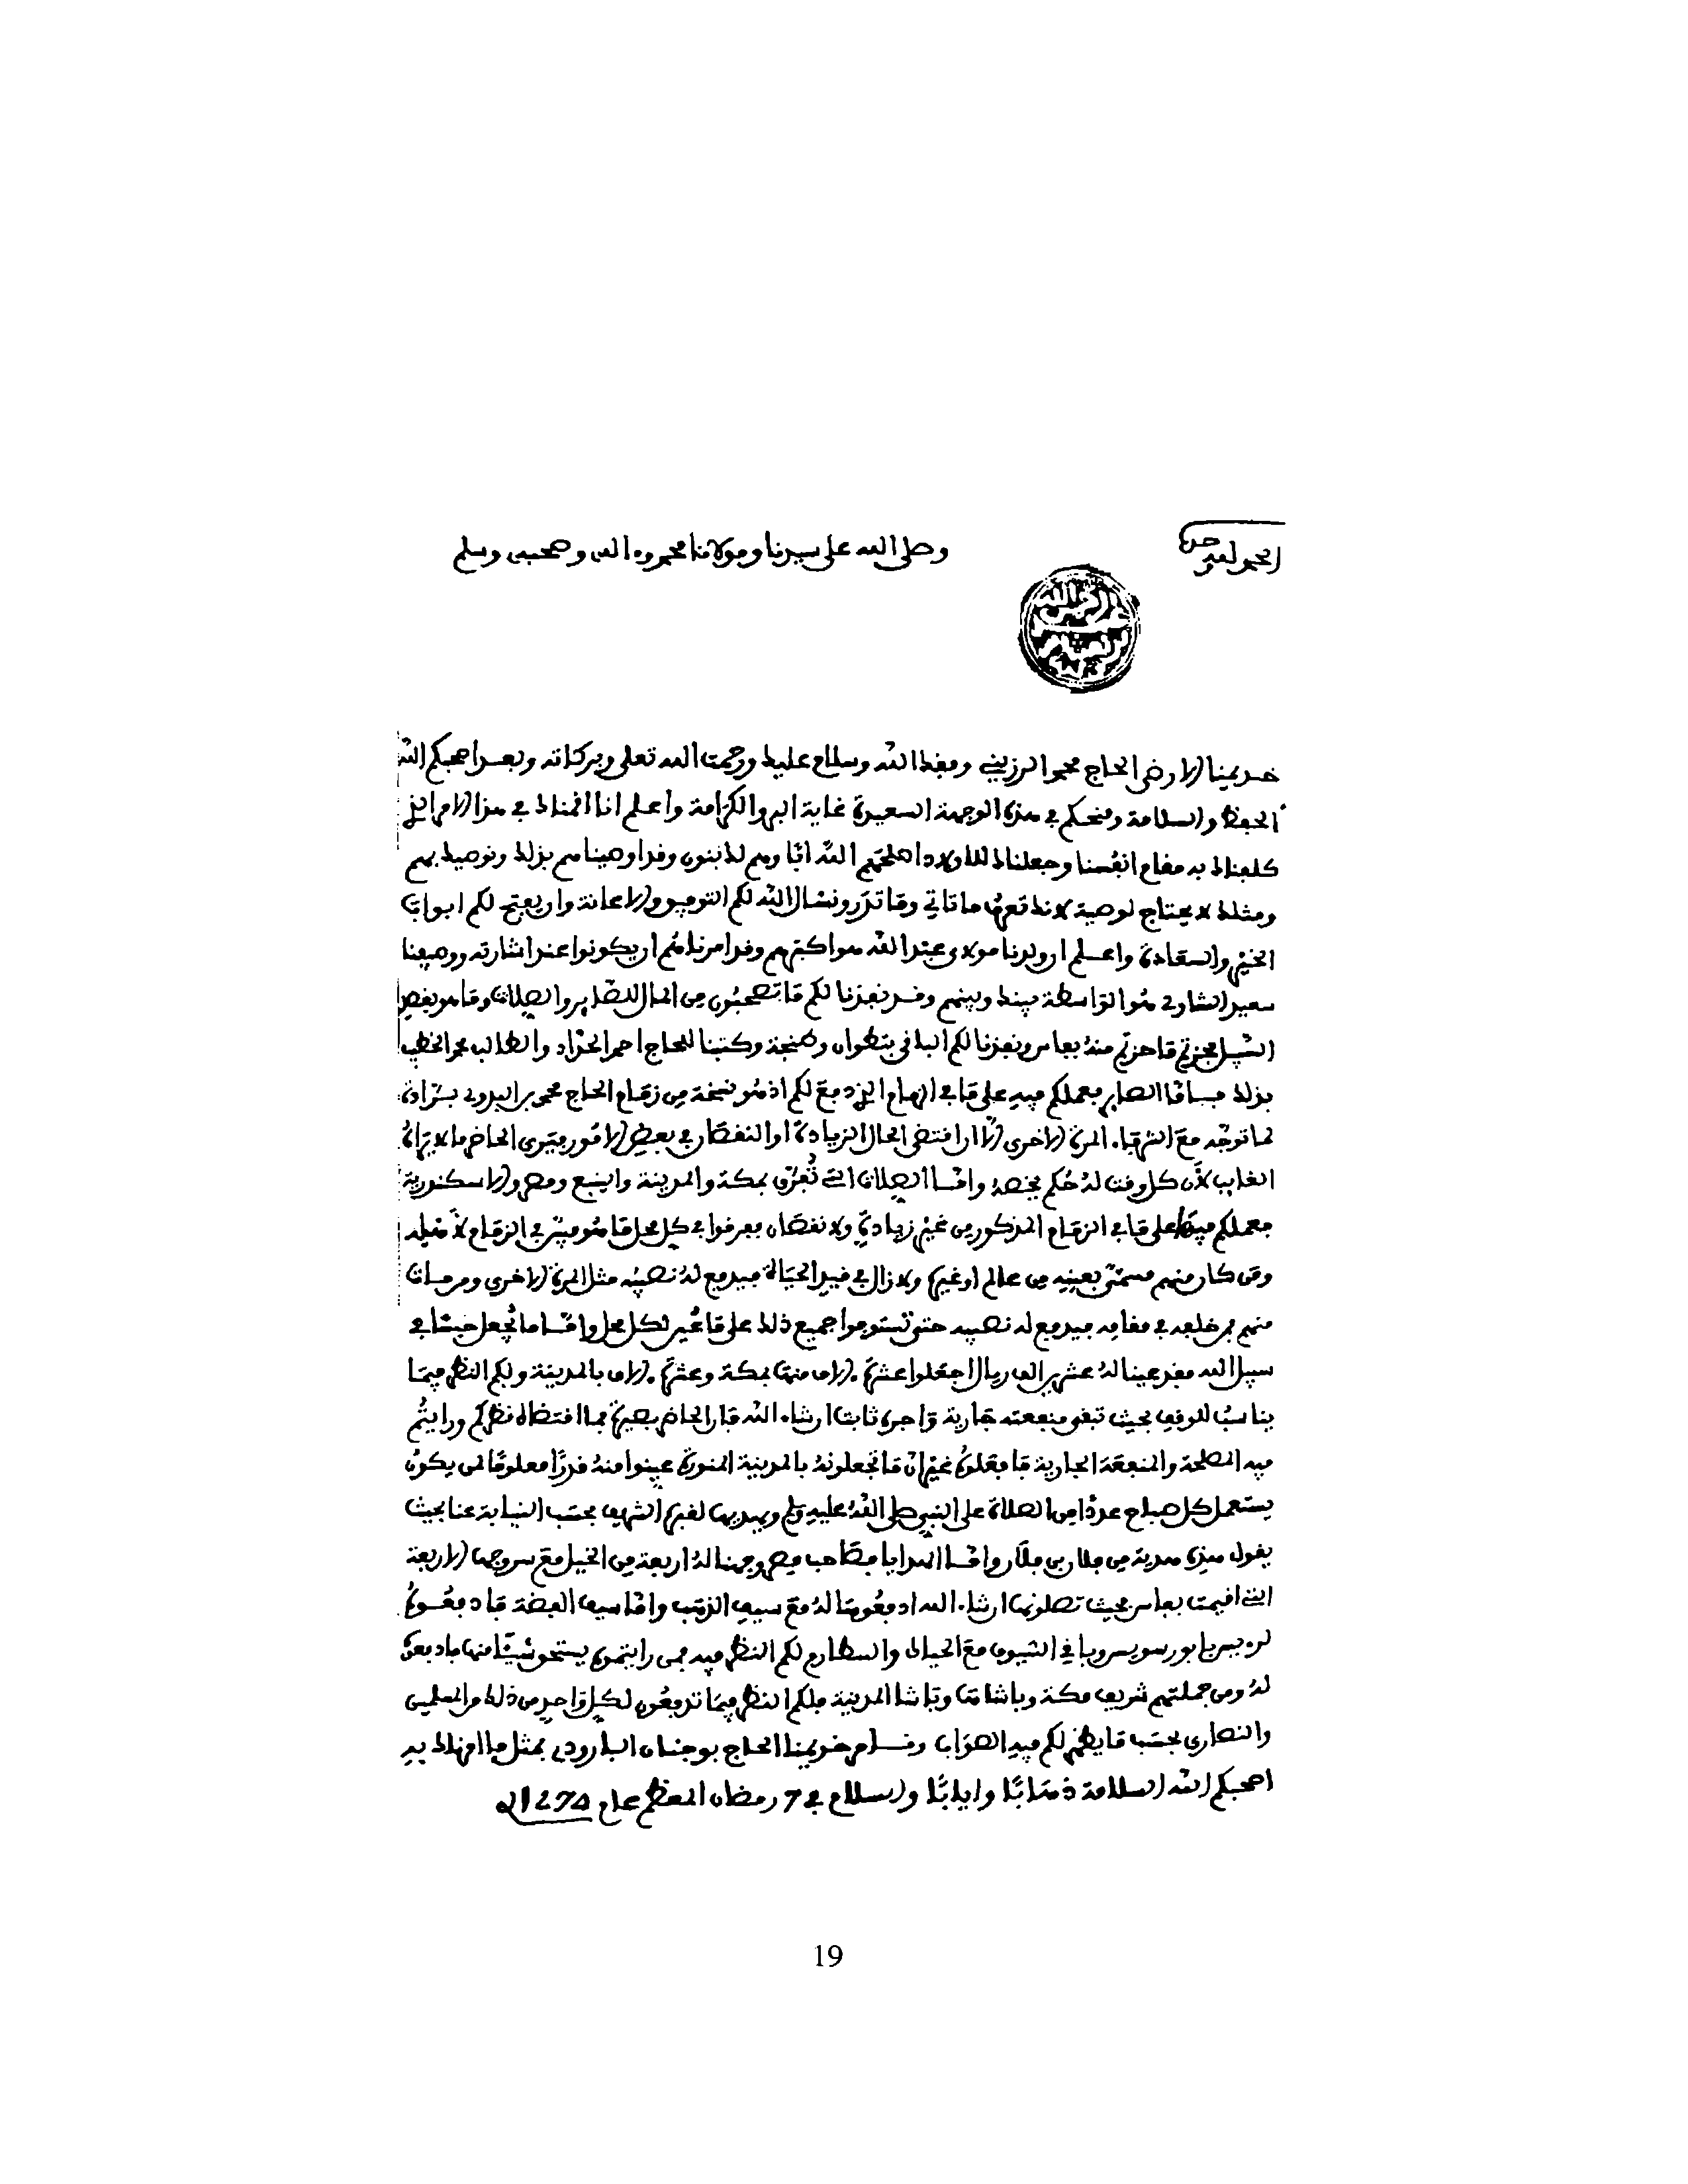 الحمد لله وحده
وصلى الله على سيدنا ومولانا محمد وءاله وصحبه وسلم
خديمنا الارضى الحاج محمد الرزيني وفقك الله وسلام عليك ورحمت الله تعلى وبركاته وبعد اصحبكم الله
الحفظ والسلامة ومنحكم في هذه الوجهة السعيدة غاية البر والكرامة واعلم اننا اقمناك في هذا الامر الذي
كلفناك به مقام انفسنا وجعلناك للاولاد اصلحهم الله ابا وهم لك بنون وقد اوصيناهم بذلك ونوصيك بهم
ومثلك لا يحتاج لوصية لانك تعرف ما تاتي وما تذر ونسال الله لكم التوفيق والاعانة وان يفتح لكم ابواب
الخير والسعادة واعلم ان ولدنا مولاي عبد الله هو اكبرهم وقد امرناهم ان يكونوا عند اشارته ووصيفنا
سعيد الشاوي هو الواسطة بينك وبينهم وقد نفذنا لكم ما تصحبون من المال للصاير والصلات وما هو بقصد
السبيل فحزتم ما حزتم منه بفاس ونفذنا لكم الباقي بتطوان وطنجة وكتبنا للحاج احمد الحداد والطالب محمد الخطيب
بذلك فاما الصاير فعملكم فيه على ما في الزمام الذي دفع لكم اذ هو نسخة من زمام الحاج محمد بن البدوي بزادة
لما توجه مع الشرفاء المرة الاخرى الا ان اقتضى الحال الزيادة او النقصان في بعض الامور فيرى الحاضر ما لا يراه
الغايب لان كل وقت له حكم يخصه واما الصلات التي تفرق بمكة والمدينة والينبع ومصر والاسكندرية
فعملكم فيها على ما في الزمام المذكور من غير زيادة ولا نقصان ففرقوا في كل محل ما هو مبين في الزمام لاهله
ومن كان منهم مسمى بعينه من عالم او غيره ولا زال في قيد الحياة فيدفع له نصيبه مثل المرة الاخرى ومن مات
منهم فمن خلفه في مقامه فيدفع له نصيبه حتى تستوفوا جميع ذلك على ما عين لكل محل واما ما يجعل حبسا في
سبيل الله فقد عينا له عشرين الف ريال اجعلوا عشرة ءالاف منها بمكة وعشرة ءالاف بالمدينة ولكم النظر فيما
يناسب للوقف بحيث تبقى منفعته جارية واجره ثابت ان شاء الله فان الحاضر بصيرة فما اقتضاه نظركم ورايتم
فيه المصلحة والمنفعة الجارية فافعلوه غير ان ما تجعلونه بالمدينة المنورة عينوا منه قدرا معلوما لمن يكون
يستعمل كل صباح عددا من الصلاة على النبي صلى الله عليه وسلم ويهديها لقبره الشريف بحسب النيابة عنا بحيث
يقول هذه هدية من فلان بن فلان واما الهدايا فصاحب مصر وجهنا له اربعة من الخيل مع سروجها الاربعة
التي اقيمت بفاس بحيث تصلونها ان شاء الله ادفعوها له مع سيف الذهب واما سيف الفضة فادفعوه
وباقي السيوف مع الحياك والسطارم لكم النظر فيه فمن رايتموه يستحق شيئا منها فادفعوه
له ومن جملتهم شريف مكة وباشاها وباشا المدينة فلكم النظر فيما تدفعون لكل واحد من ذلك من المسلمين
والنصارى بحسب ما يظهر لكم فيه الصواب وقدام خديمنا الحاج بوجنان البارودي بمثل ما امرناك به
اصحبكم الله السلامة ذهابا وايابا والسلام في 7 رمضان المعظم عام 1274
19